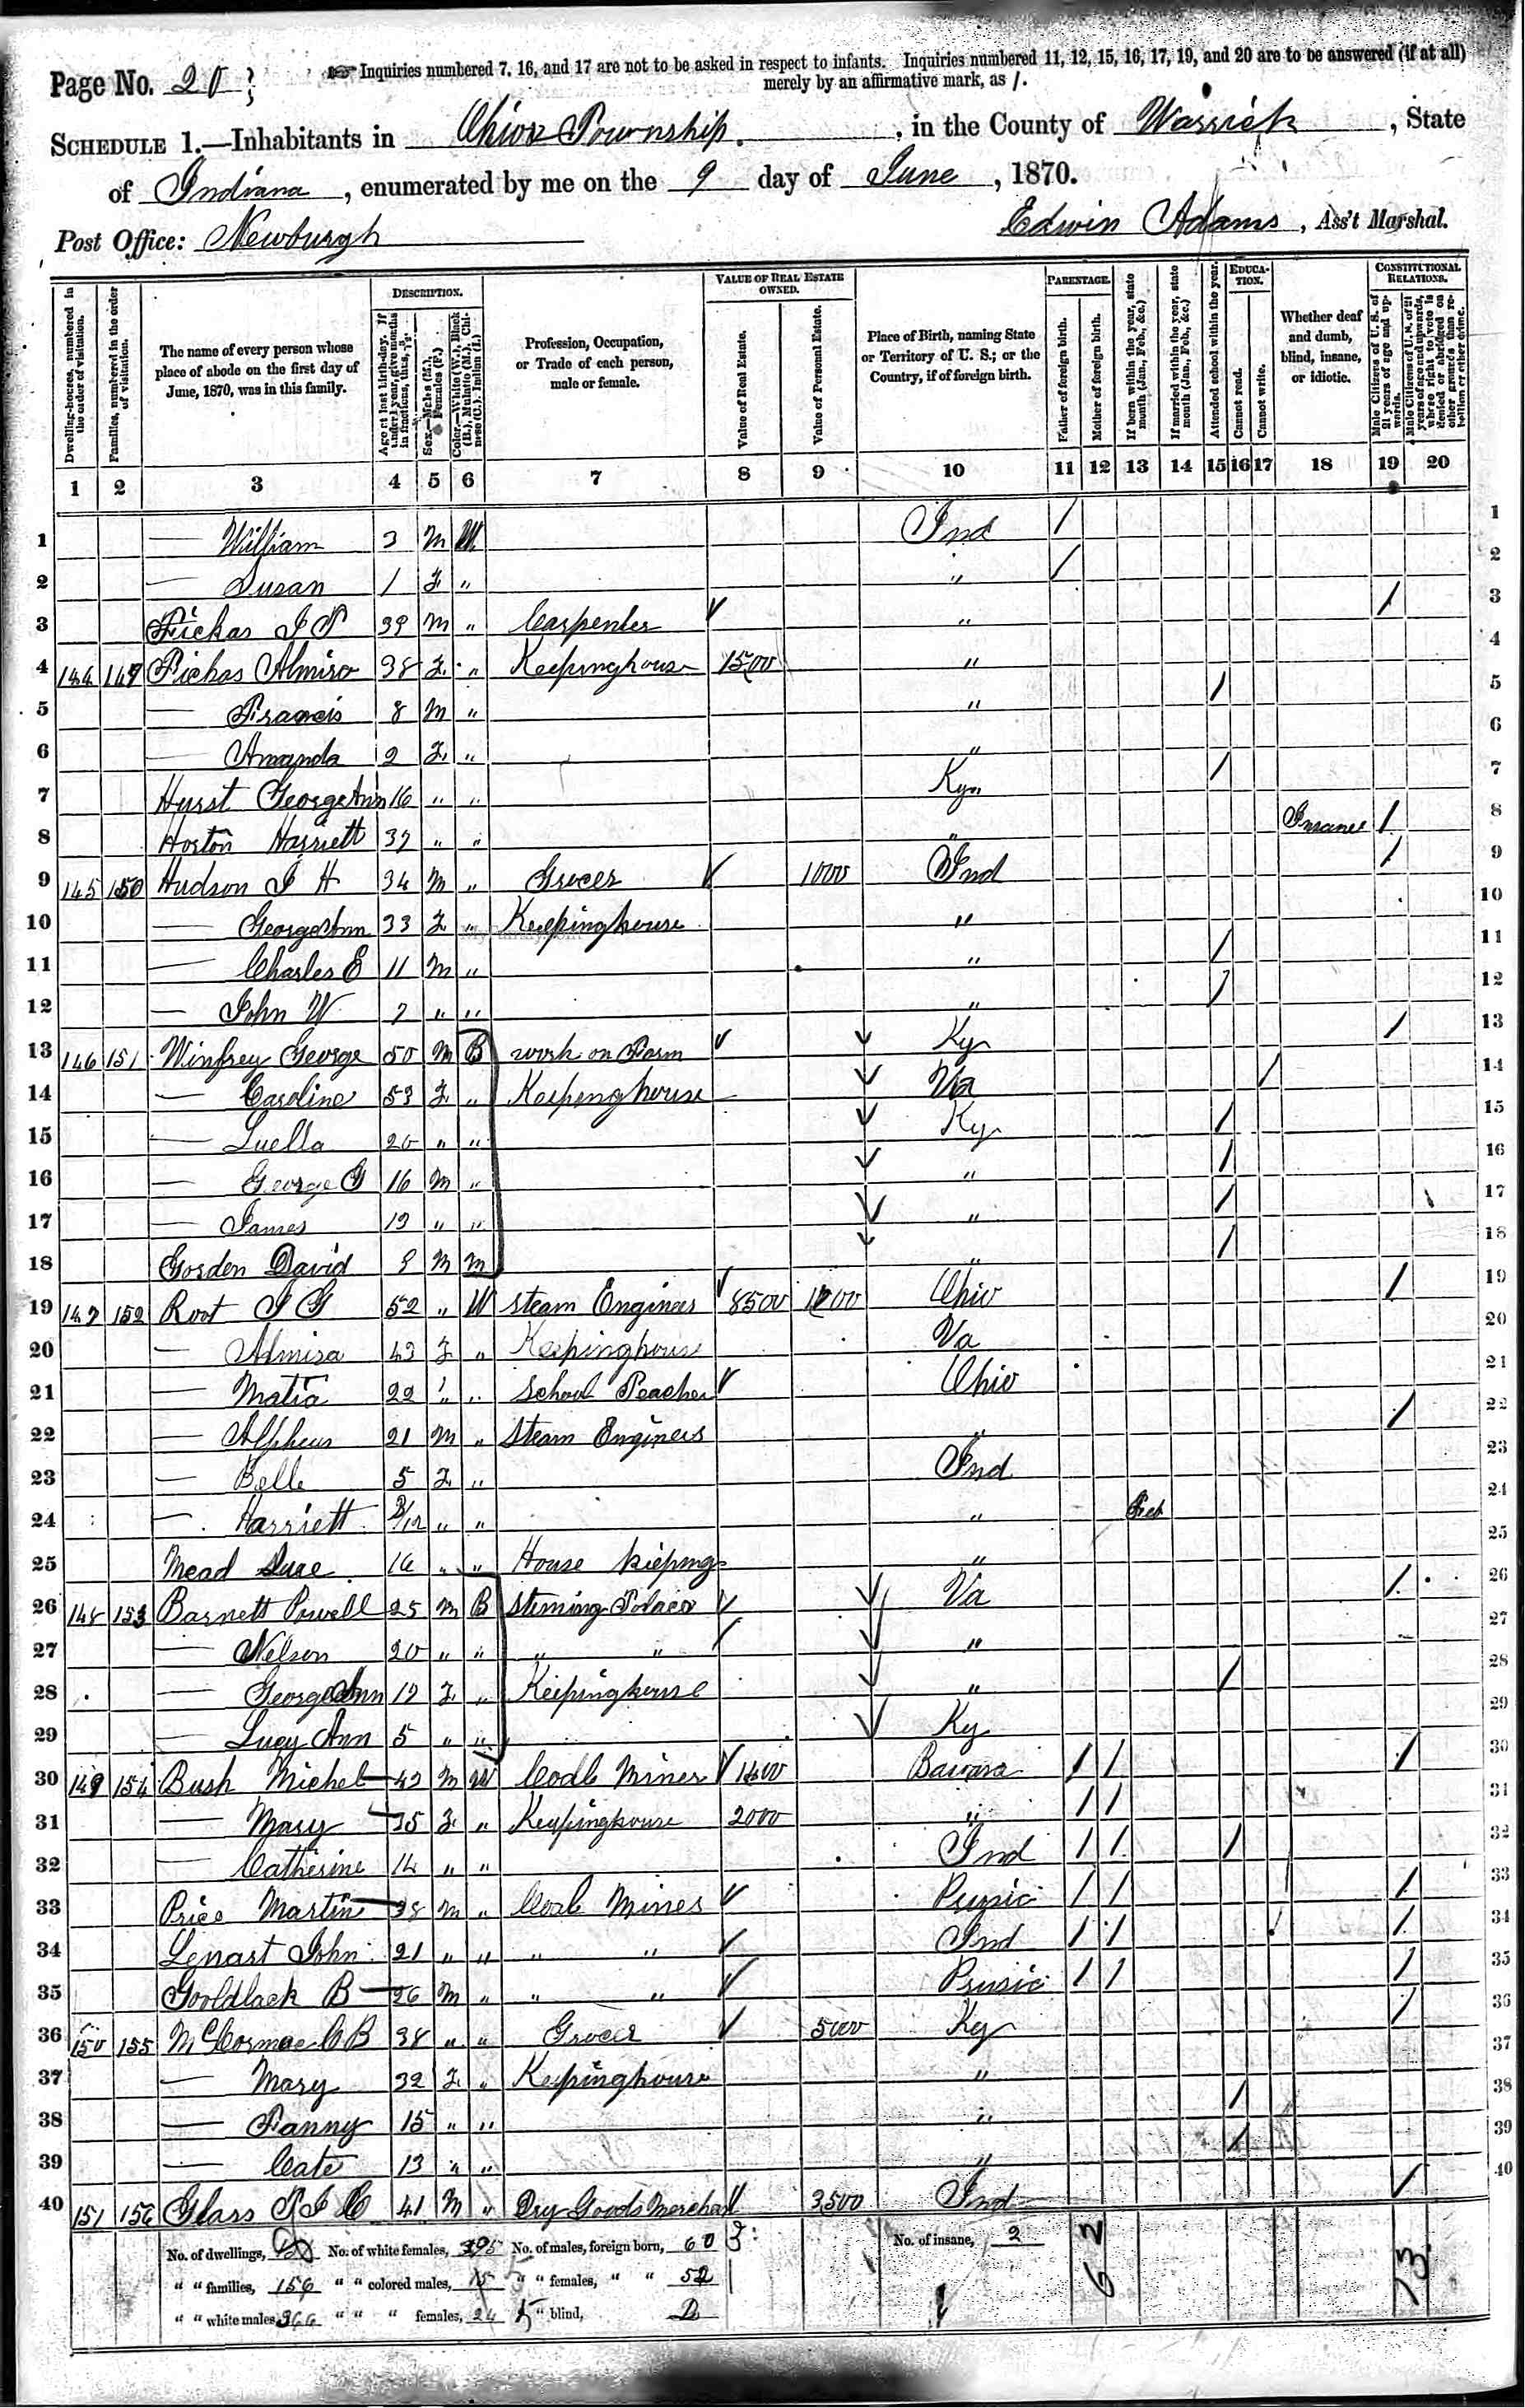 Page No. 20
Inquiries numbered 7, 16, and 17 are not to be asked in respect to infants. Inquiries numbered 11, 12, 15, 16, 17, 19, and 20 are to be answered (if at all)
merely by an affirmative mark, as /.
SCHEDULE 1.—Inhabitants in Ohio Township, in the County of Warrick, State
of Indiana, enumerated by me on the 9 day of June, 1870.
Post Office: Newburgh
Edwin Adams, Ass't Marshal.
Dwelling-houses, numbered in the order of visitation.
Families, numbered in the order of visitation.
The name of every person whose place of abode on the first day of June, 1870, was in this family.
DESCRIPTION.
Age at last birth-day. If under 1 year, give months in fractions, thus, 3/12.
Sex.—Males (M.), Females (F.)
Color.—White (W.), Black (B.), Mulatto (M.), Chinese (C.), Indian (I.)
Profession, Occupation, or Trade of each person, male or female.
VALUE OF REAL ESTATE OWNED.
Value of Real Estate.
Value of Personal Estate.
Place of Birth, naming State or Territory of U. S.; or the Country, if of foreign birth.
PARENTAGE.
Father of foreign birth.
Mother of foreign birth.
If born within the year, state month (Jan., Feb., &c.)
If married within the year, state month (Jan., Feb., &c.)
Attended school within the year.
EDUCATION.
Cannot read.
Cannot write.
Whether deaf and dumb, blind, insane, or idiotic.
CONSTITUTIONAL RELATIONS.
Male Citizens of U. S. of 21 years of age and upwards.
Male Citizens of U. S. of 21 years of age and upwards, whose right to vote is denied or abridged on other grounds than rebellion or other crime.
1 2 3 4 5 6 7 8 9 10 11 12 13 14 15 16 17 18 19 20
1 — William 3 M W Ind / 1
2 — Susan 1 F " " / 2
3 Fickas J P 39 M " Carpenter " / 3
4 144 149 Fickas Almira 38 F " Keepinghouse 1500 " 4
5 — Francis 8 M " " / 5
6 — Amanda 2 F " " 6
7 Hurst GeorgeAnn 16 " " Ky / 7
8 Horton Harriett 37 " " " Insane / 8
9 145 150 Hudson J H 34 M " Grocer 1000 Ind / 9
10 — GeorgeAnn 33 F " Keepinghouse " 10
11 — Charles E 11 M " " / 11
12 — John W 7 " " " / 12
13 146 151 Winfrey George 50 M B work on Farm Ky / 13
14 — Caroline 53 F " Keepinghouse Va / 14
15 — Luella 20 " " Ky / 15
16 — George G 16 M " " / 16
17 — James 12 " " " / 17
18 Gorden David 9 M M " / 18
19 147 152 Root J G 52 " W Steam Engineer 8500 1200 Ohio / 19
20 — Almira 43 F " Keepinghouse Va 20
21 — Matia 22 " " School Teacher Ohio 21
22 — Alpheus 21 M " Steam Engineer " / 22
23 — Belle 5 F " Ind 23
24 — Harriett 3/12 " " " Feb 24
25 Mead 16 " " House Kieping " 25
26 148 153 Barnett Powell 25 M B Steming Tobaco Va / 26
27 — Nelson 20 " " " " " 27
28 — GeorgeAnn 19 F " Keepinghouse " / 28
29 — Lucy Ann 5 " " Ky 29
30 149 154 Bush Michel 42 M W Coal Miner 1400 Bavara / / / 30
31 — Mary 35 F " Keepinghouse 2000 " / / 31
32 — Catherine 14 " " Ind / / / 32
33 Price Martin 38 M " Coal Miner Prusia / / / 33
34 Lenart John 21 " " " " Ind / / / 34
35 Gooldlack B 26 M " " " Prusia / / / 35
36 150 155 McCormac C B 38 " " Grocer 5000 Ky / 36
37 — Mary 32 F " Keepinghouse " 37
38 — Fanny 15 " " " / 38
39 — Cate 13 " " " / 39
40 151 156 Glass 41 M " Dry Goods Merchant 3500 Ind / 40
No. of dwellings, No. of white females, 395 No. of males, foreign born, 60 No. of insane, 2
" " families, 156 " " colored males, 15 " " females, " " 52
" " white males, 366 " " " females, 24 " blind,
62
73